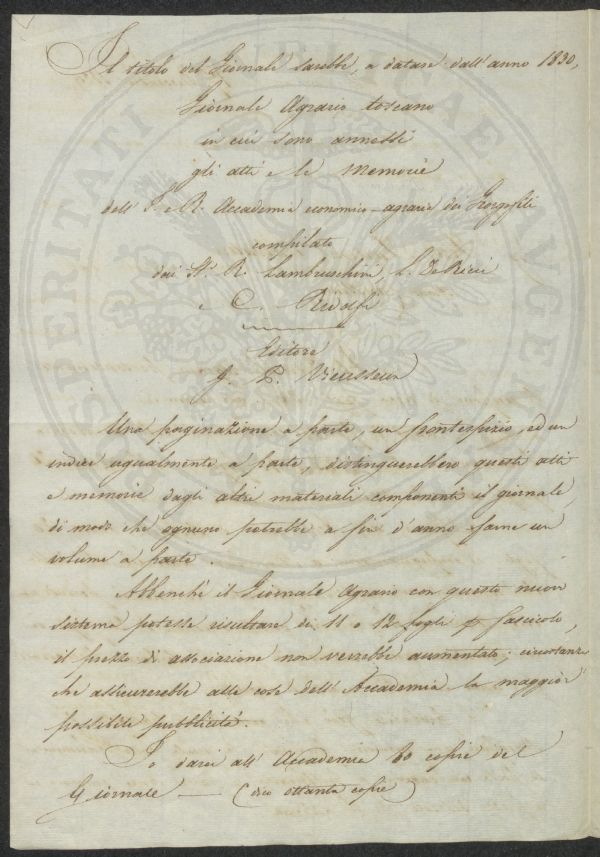 Il titolo del Giornale sarebbe, a datare dall'anno 1830,
Giornale Agrario toscano
in cui sono annessi
gli atti e le memorie
dell' I. e R. Accademia economico-agraria dei Georgofili
compilato
dai SS.ri R. Lambruschini, L. De Ricci
e C. Ridolfi
Editore
G. P. Vieusseux
Una paginazione a parte, un frontespizio, ed un
indice ugualmente a parte, distinguerebbero questi atti
e memorie dagli altri materiali componenti il giornale,
di modo che ognuno potrebbe a fin d'anno farne un
volume a parte.
Abbenchè il Giornale Agrario con questo nuovo
sistema potesse risultare di 11 o 12 fogli p fascicolo,
il prezzo di associazione non verrebbe aumentato; circostanza
che assicurerebbe alle cose dell'Accademia la maggior
possibile pubblicità.
Io darei all' Accademia 80 copie del
Giornale — (dico ottanta copie)
SPERITATI PUBLICAE AUGENDAE